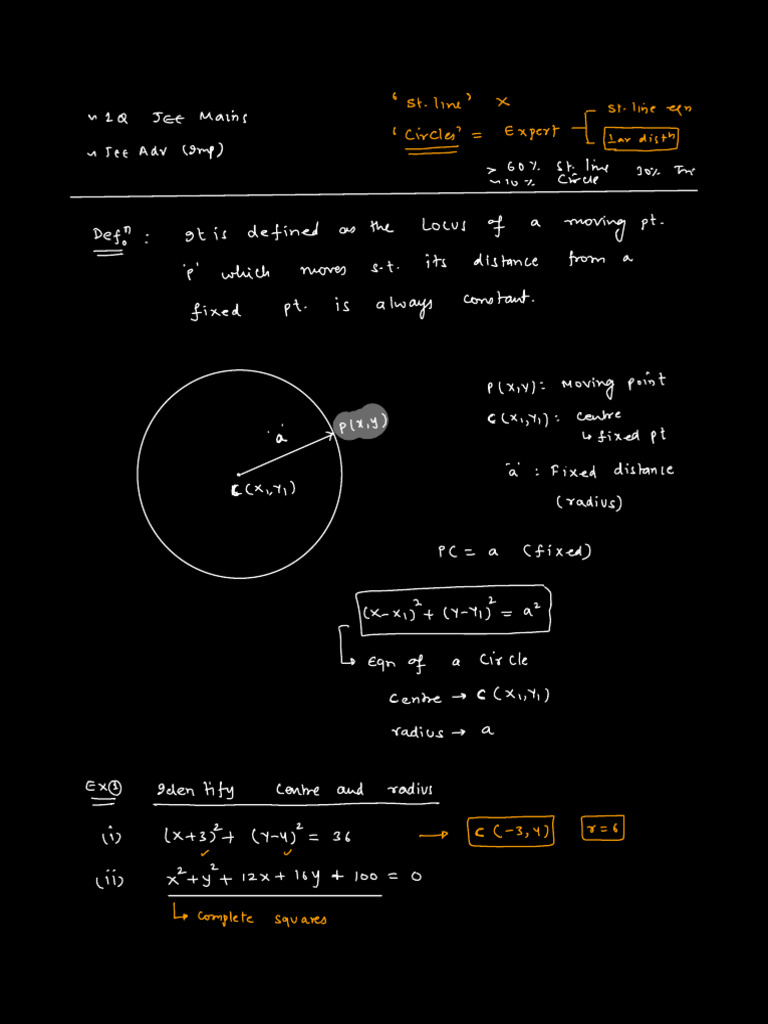 ~ 1Q JEE Mains
~ JEE Adv (Imp)
'St. line' X
'Circles' = Expert
St. line eqn
⊥ar distn
> 60% St. line 30%
~ 10% Circle
Defn: It is defined as the Locus of a moving pt.
'P' which moves s.t. its distance from a
fixed pt. is always constant.
'a'
P(x,y)
C(x₁,y₁)
P(x,y): Moving point
C(x₁,y₁): centre
↳ fixed pt
'a' : Fixed distance
(radius)
PC = a (fixed)
(x-x₁)² + (y-y₁)² = a²
↳ Eqn of a circle
Centre → C(x₁,y₁)
radius → a
Ex① Identify Centre and radius
(i) (x+3)² + (y-4)² = 36 → C(-3,4) r=6
(ii) x²+y²+12x+16y+100 = 0
↳ Complete squares